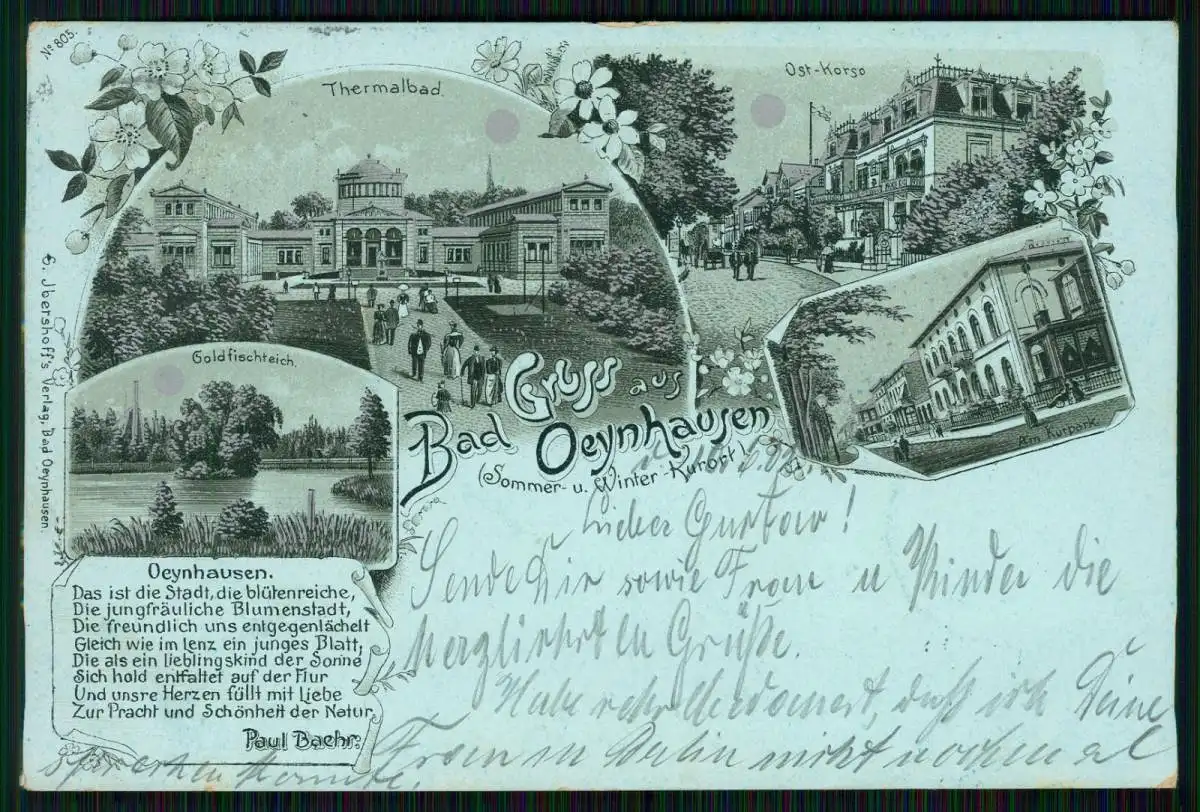 No 805.
Thermalbad.
Ost-Korso
Goldfischteich.
Am Kurpark
G. Ibershoff's Verlag, Bad Oeynhausen.
Gruss aus
Bad Oeynhausen
(Sommer- u. Winter-Kurort)
Oeynhausen.
Das ist die Stadt, die blütenreiche,
Die jungfräuliche Blumenstadt,
Die freundlich uns entgegenlächelt
Gleich wie im Lenz ein junges Blatt,
Die als ein Lieblingskind der Sonne
Sich hold entfaltet auf der Flur
Und unsre Herzen füllt mit Liebe
Zur Pracht und Schönheit der Natur.
Paul Baehr.
Lieber Gustav!
Sende Dir sowie Frau u Kinder die
herzlichsten Grüße.
Habe sehr bedauert, daß ich Deine
Frau in Berlin nicht noch mal
sprechen konnte.